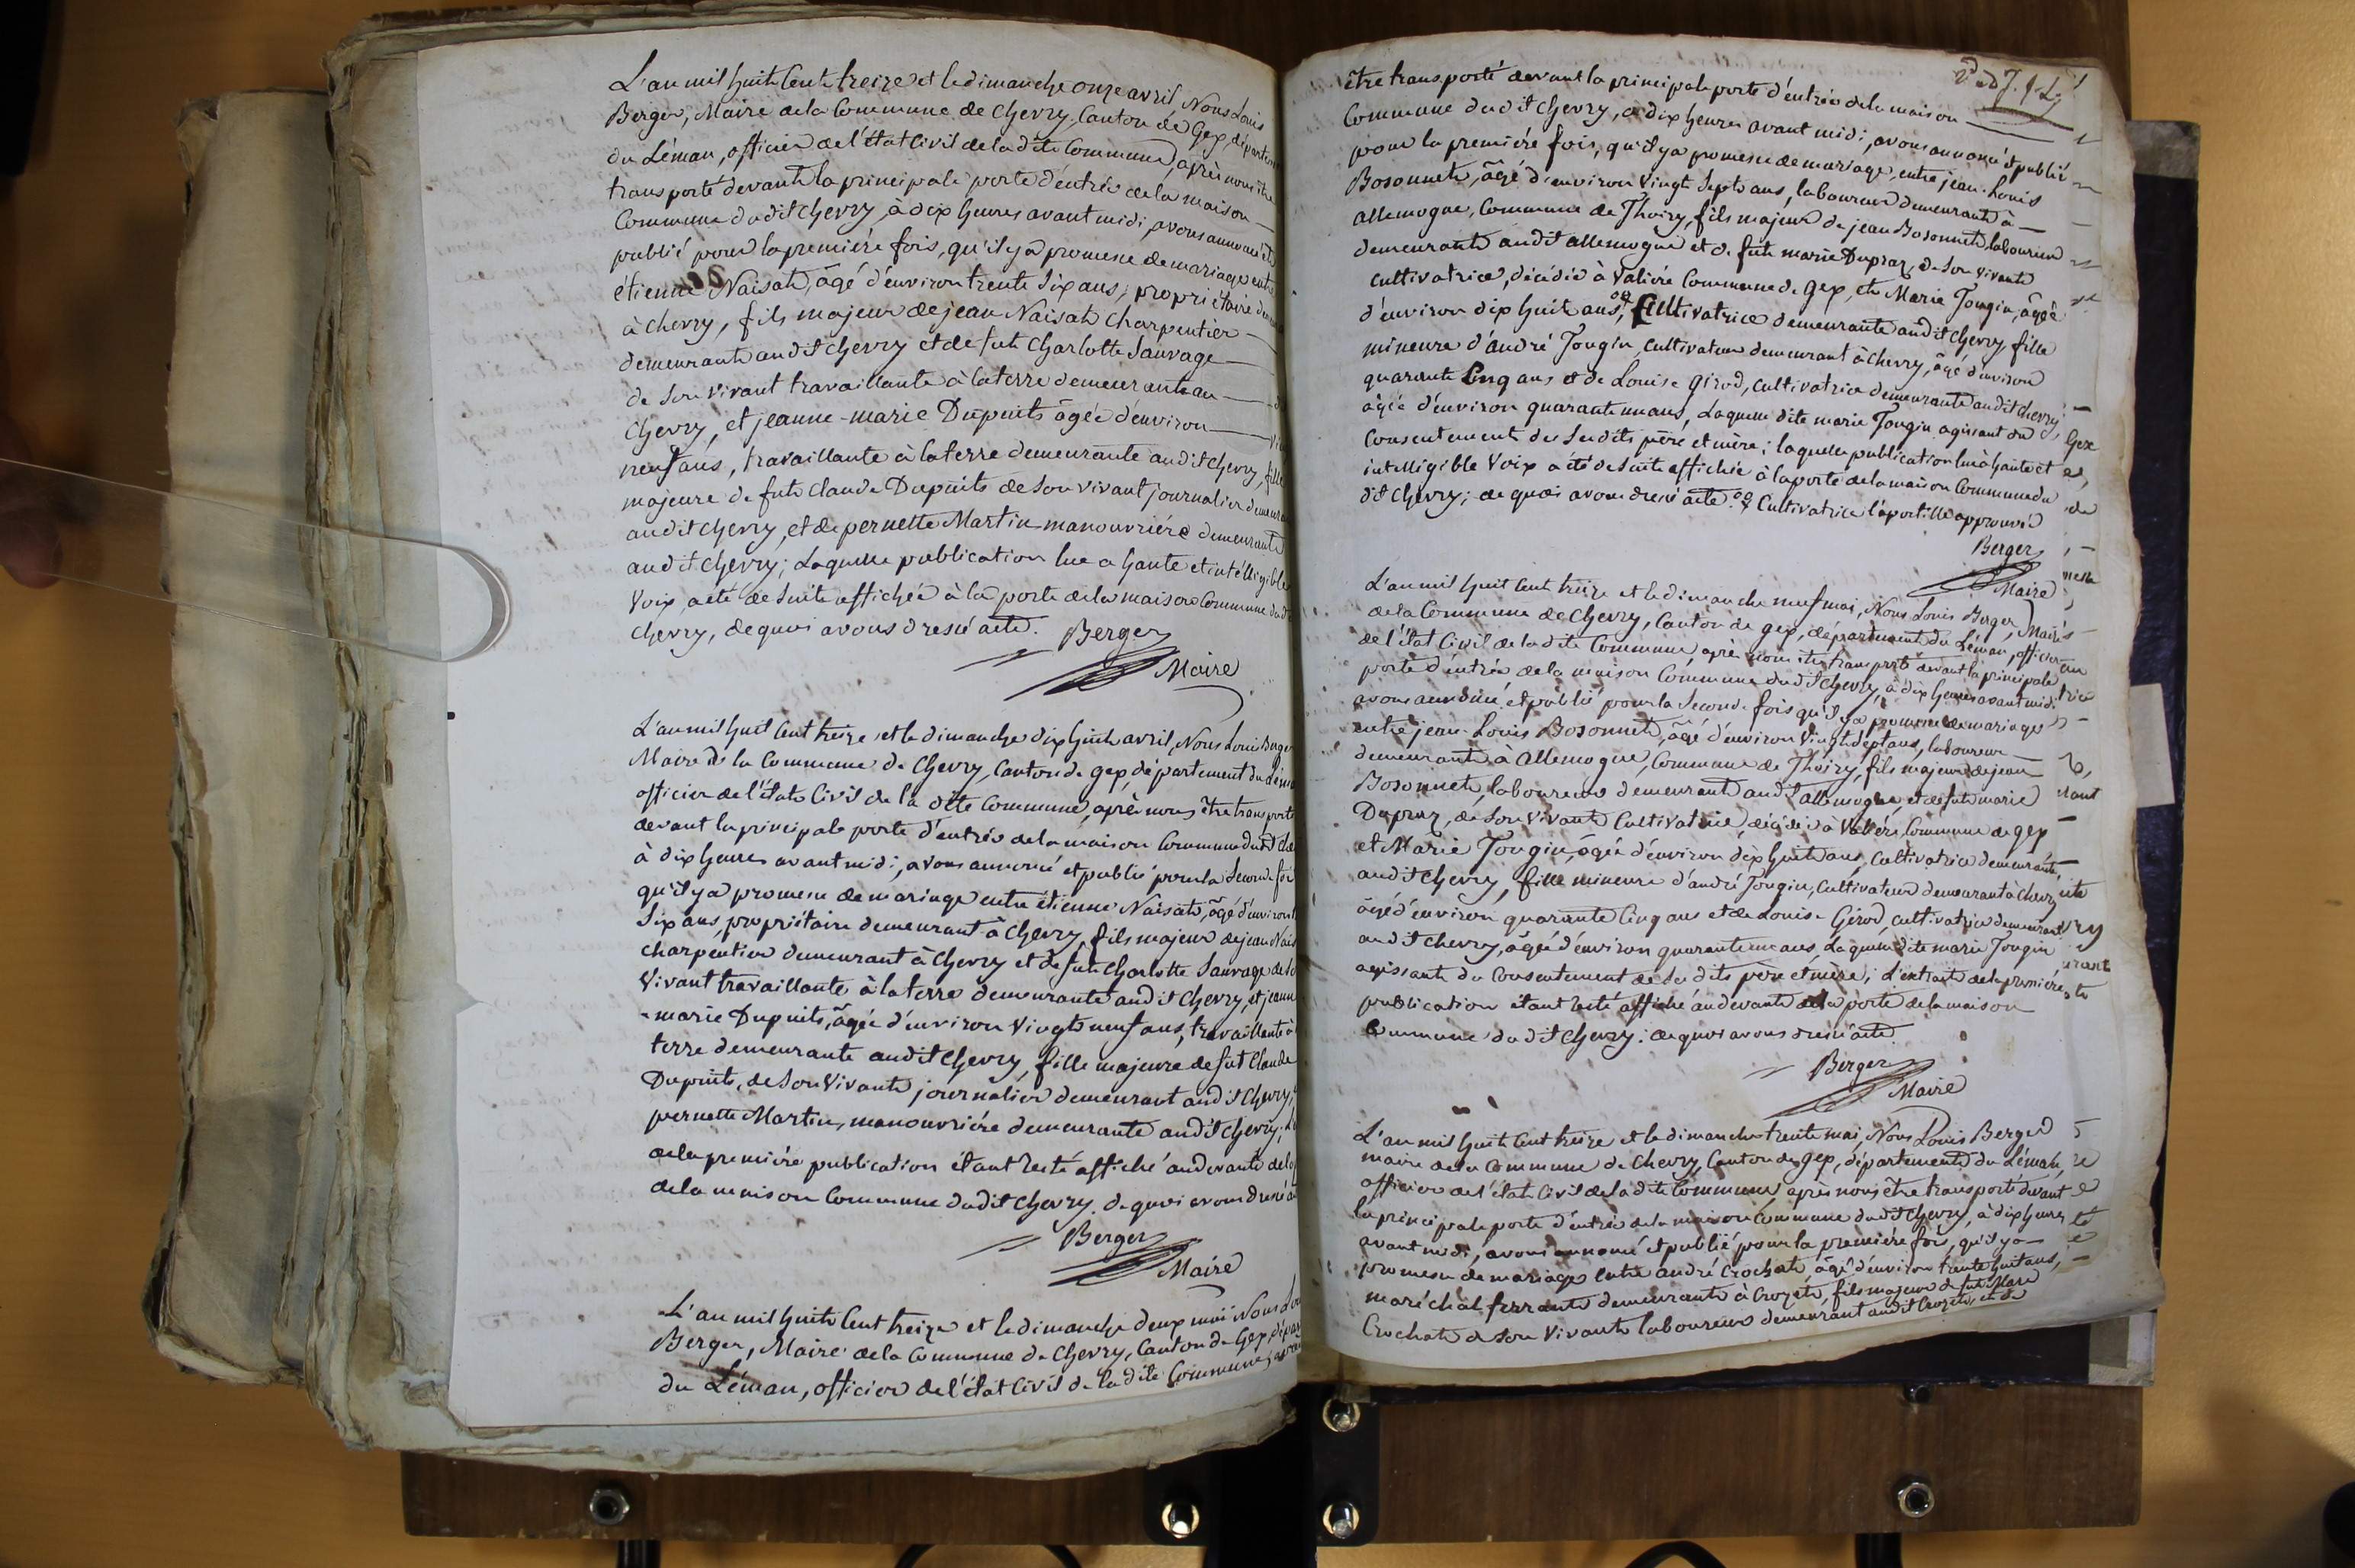 L'an mil huit cent treize et le dimanche onze avril Nous Louis
Berger, Maire de la Commune de Chevry, Canton de Gex, départem
du Léman, officier de l'état Civil de la dite Commune, après nous être
transporté devant la principale porte d'entrée de la maison
Commune dudit Chevry, à dix heures avant midi, avons annoncé et
publié pour la première fois, qu'il y a promesse de mariage entre
étienne Naisat, âgé d'environ trente six ans, propriétaire
à Chevry, fils majeur de jean Naisat charpentier
demeurant audit Chevry et de fut Charlotte Sauvage
de Son vivant travaillante à la terre demeurante au
Chevry, et jeanne-marie Dupuits âgée d'environ
neuf ans, travaillante à la terre demeurante audit Chevry, fille
majeure de fut Claude Dupuits de Son vivant journalier demeurant
audit Chevry, et de pernette Martin manouvrière demeurante
audit Chevry; Laquelle publication lue a haute et intélligible
Voix, a été de Suite affichée à la porte de la maison Commune dudit
Chevry, de quoi avons dressé acte. Berger
Maire
L'an mil huit Cent treize et le dimanche dix huit avril, Nous Louis Berger
Maire de la Commune de Chevry, Canton de gex, département du Léma
officier de l'état Civil de la dite Commune, après nous être transporté
devant la principale porte d'entrée de la maison Commune dudit Che
à dix heures avant midi, avons annoncé et publié pour la Seconde foi
qu'il y a promesse de mariage entre étienne Naisat, âgé d'environ
Six ans, propriétaire demeurant à Chevry, fils majeur de jean Nais
charpentier demeurant à Chevry et de fut Charlotte Sauvage de So
Vivant travaillante à la terre demeurante audit Chevry, et jeanne
-marie Dupuits, âgée d'environ Vingt neuf ans, travaillante à
terre demeurante audit Chevry, fille majeure de fut Claude
Dupuits, de Son Vivant journalier demeurant audit Chevry,
pernette Martin, manouvrière demeurante audit Chevry;
de la première publication étant resté affiché au devant de la
de la maison Commune dudit Chevry. de quoi avons dressé a
Berger
Maire
L'an mil huit Cent treize et le dimanche deux mai Nous Lou
Berger, Maire de la Commune de Chevry, Canton de Gex, dépar
du Léman, officier de l'état Civil de la dite Commune, après
être transporté devant la principale porte d'entrée de la maison
Commune dudit Chevry, à dix heures avant midi, avons annoncé et publié
pour la première fois, qu'il y a promesse de mariage, entre jean-Louis
Bosonnet, âgé d'environ Vingt Sept ans, laboureur demeurant à
allemogne, Commune de Thoiry, fils majeur de jean Bosonnet, laboureur
demeurant audit allemogne et de fut marie Dupraz, de Son vivant
Cultivatrice, décédée à Valière Commune de gex, et Marie Tougin, âgée
d'environ dix huit ans, Cultivatrice demeurante audit Chevry, fille
mineure d'andré Tougin, Cultivateur demeurant à Chevry, âgé d'environ
quarante Cinq ans et de Louise Girod, Cultivatrice demeurante audit Chevry,
âgée d'environ quarante un ans, Laquelle dite marie Tougin agissant du
Consentement des Sus dits père et mère; laquelle publication lue à haute et
intelligible Voix a été de Suite affichée à la porte de la maison Commune du
dit Chevry; de quoi avons dressé acte. Cultivatrice l'apostille approuvée
Berger
Maire
L'an mil huit Cent treize et le dimanche neuf mai, Nous Louis Berger, Maire
de la Commune de Chevry, Canton de gex, département du Léman, officier
de l'état Civil de la dite Commune, après nous être transporté devant la principale
porte d'entrée de la maison Commune dudit Chevry, à dix heures avant midi
avons annoncé et publié pour la Seconde fois qu'il y a promesse de mariage
entre jean-Louis Bosonnet, âgé d'environ Vingt Sept ans, laboureur
demeurant à Allemogne, Commune de Thoiry, fils majeur de jean
Bosonnet, laboureur demeurant audit allemogne, et de fut marie
Dupraz, de Son vivant Cultivatrice, décédée à Valière Commune de gex
et Marie Tougin, âgée d'environ dix huit ans, Cultivatrice demeurante
audit Chevry, fille mineure d'andré Tougin, Cultivateur demeurant à Chevry
âgé d'environ quarante Cinq ans et de Louise Girod, Cultivatrice demeurant
audit Chevry, âgée d'environ quarante un ans, Laquelle dite marie Tougin
agissant du Consentement de Sus dits père et mère; L'extrait de la première
publication étant resté affiché au devant de la porte de la maison
Commune dudit Chevry: de quoi avons dressé acte
Berger
Maire
L'an mil huit Cent treize et le dimanche trente mai, Nous Louis Berger
maire de la Commune de Chevry, Canton de gex, département du Léman,
officier de l'état Civil de la dite Commune après nous être transporté devant
la principale porte d'entrée de la maison Commune dudit Chevry, à dix heures
avant midi, avons annoncé et publié pour la première fois, qu'il y a
promesse de mariage entre andré Crochat, âgé d'environ trente huit ans,
maréchal ferrant demeurant à Crozet, fils majeur de fut Marc
Crochat de Son Vivant laboureur demeurant audit Crozet, et de